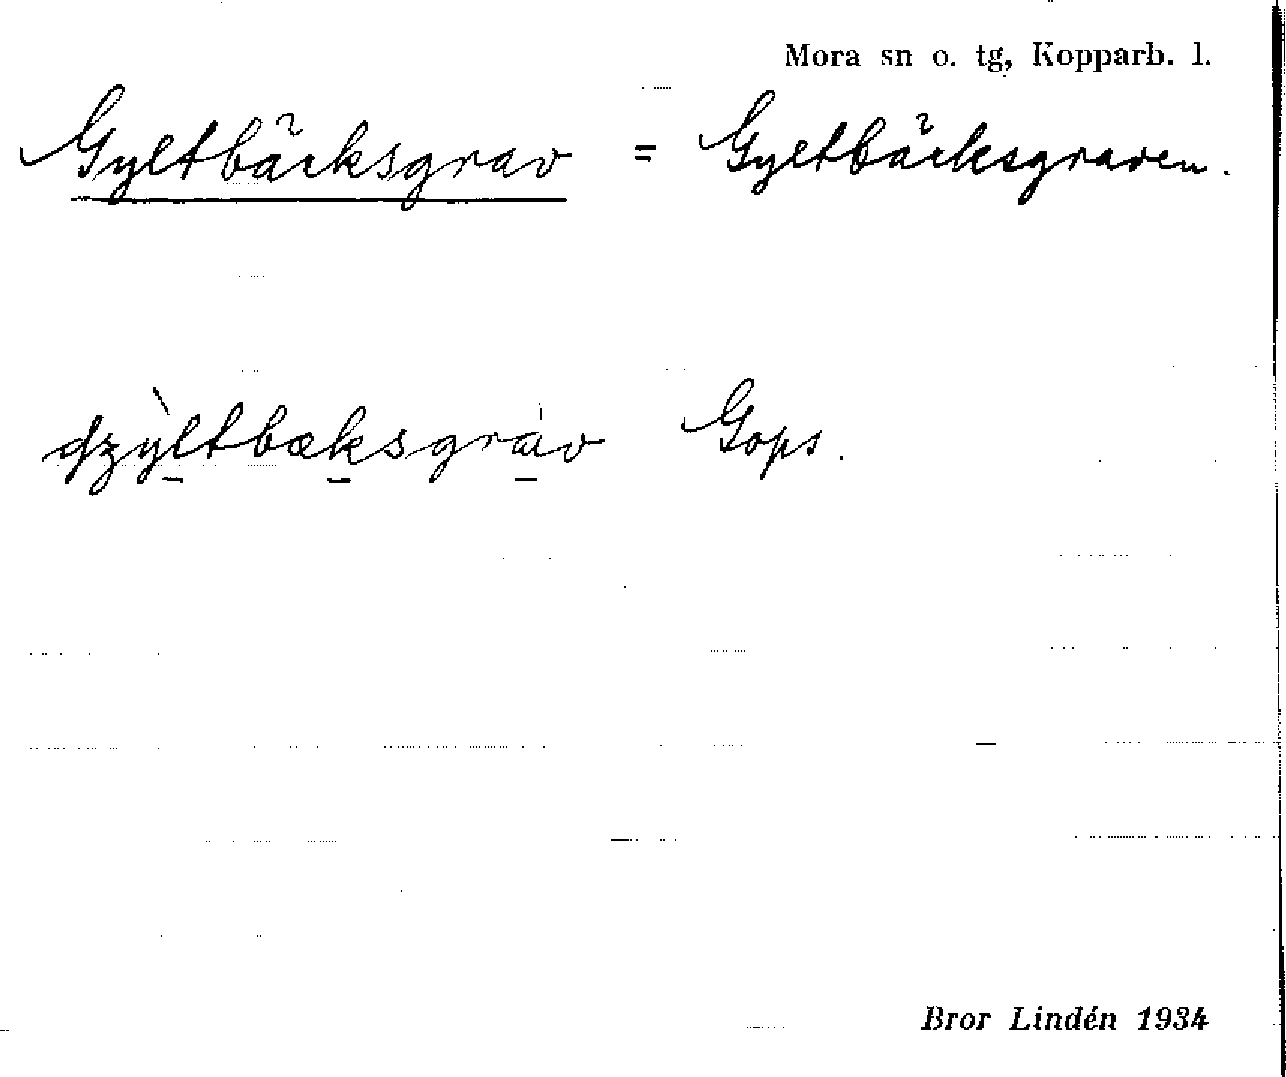 Mora sn o. tg, Kopparb. l.
Gyltbäcksgrav = Gyltbäcksgraven.
dzỳltbæksgràv Gops.
Bror Lindén 1934